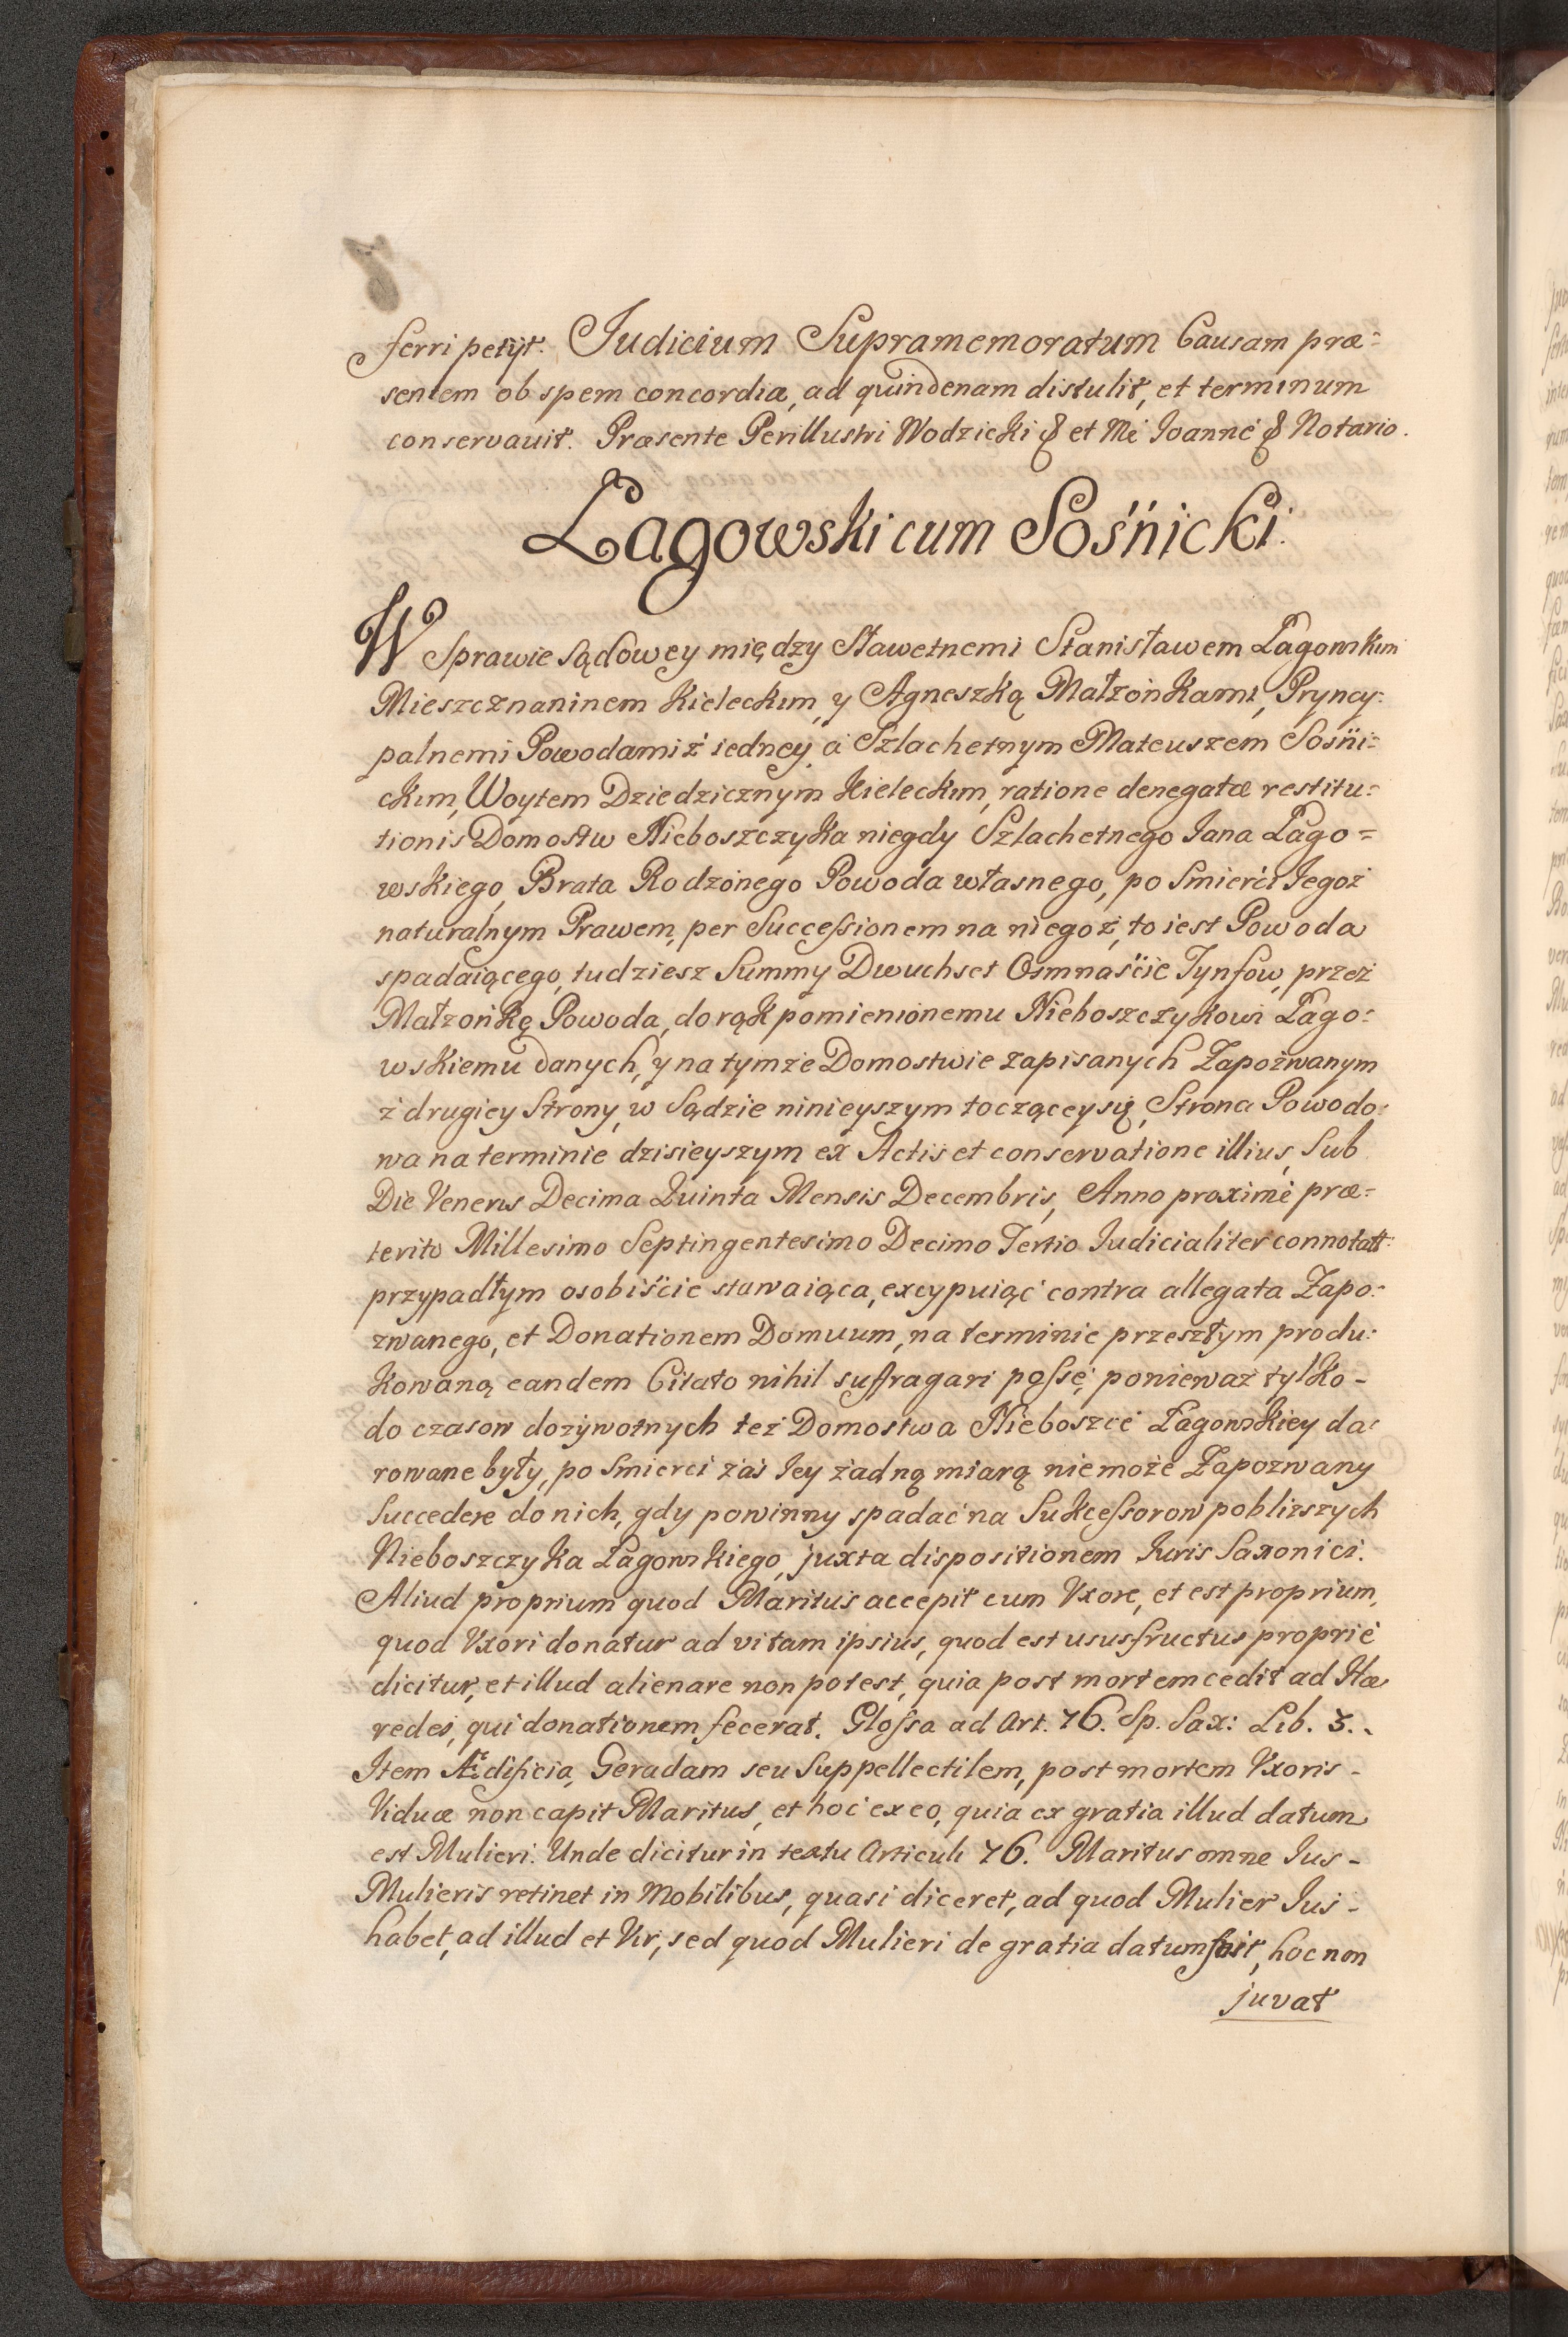 ferri petijt. Judicium Supramemoratum Causam præ=
sentem ob spem concordiæ, ad quindenam distulit, et terminum
conservavit. Præsente Perillustri Wodzicki & et Me Joanne & Notario.
Łagowski cum Sośnicki.
W Sprawie Sądowey między Sławetnemi Stanisławem Łagowskim
Mieszcznaninem Kieleckim, y Agneszką Małżonkami, Pryncy=
palnemi Powodami z iedney, a Szlachetnym Mateuszem Sośni=
ckim, Woytem Dziedzicznym Kieleckim, ratione denegatæ restitu=
tionis Domostw Nieboszczyka niegdy Szlachetnego Jana Łago=
wskiego, Brata Rodzonego Powoda własnego, po Smierci Jegoż
naturalnym Prawem, per Successionem na niegoż, to iest Powoda
spadaiącego, tudziesz Summy Dwuchset Osmnaście Tynfow, przez
Małżonkę Powoda, do rąk pomienionemu Nieboszczykowi Łago=
wskiemu danych, y na tymże Domostwie zapisanych Zapozwanym
z drugiey Strony, w Sądzie ninieyszym toczącey się, Strona Powodo=
wa na terminie dzisieyszym ex Actis et conservatione illius, Sub
Die Veneris Decima Quinta Mensis Decembris, Anno proximè præ=
terito Millesimo Septingentesimo Decimo Tertio Judicialiter connotatt:
przypadłym osobiście stawaiąca, excypuiąc contra allegata Zapo=
zwanego, et Donationem Domuum, na terminie przeszłym produ=
kowaną eandem Citato nihil suffragari posse, ponieważ tylko-
do czasow dożywotnych też Domostwa Nieboszce Łagowskiey da=
rowane były, po Smierci zaś Jey żadną miarą nie może Zapozwany
Succedere do nich, gdy powinny spadać na Sukcessorow poblizszych
Nieboszczyka Łagowskiego, juxta dispositionem Juris Saxonici.
Aliud proprium quod Maritus accepit cum Vxore, et est proprium,
quod Vxori donatur ad vitam ipsius, quod est ususfructus propriè
dicitur, et illud alienare non potest, quia post mortem cedit ad Hæ
redes, qui donationem fecerat. Glossa ad Art. 76. Sp. Sax: Lib. 3.
Item Ædificia, Geradam seu Suppellectilem, post mortem Vxoris-
Viduæ non capit Maritus, et hoc ex eo, quia ex gratia illud datum
est Mulieri. Unde dicitur in textu Articuli 76. Maritus omne Jus-
Mulieris retinet in Mobilibus, quasi diceret, ad quod Mulier Jus-
habet, ad illud et Vir, sed quod Mulieri de gratia datum fuit, hoc non
juvat